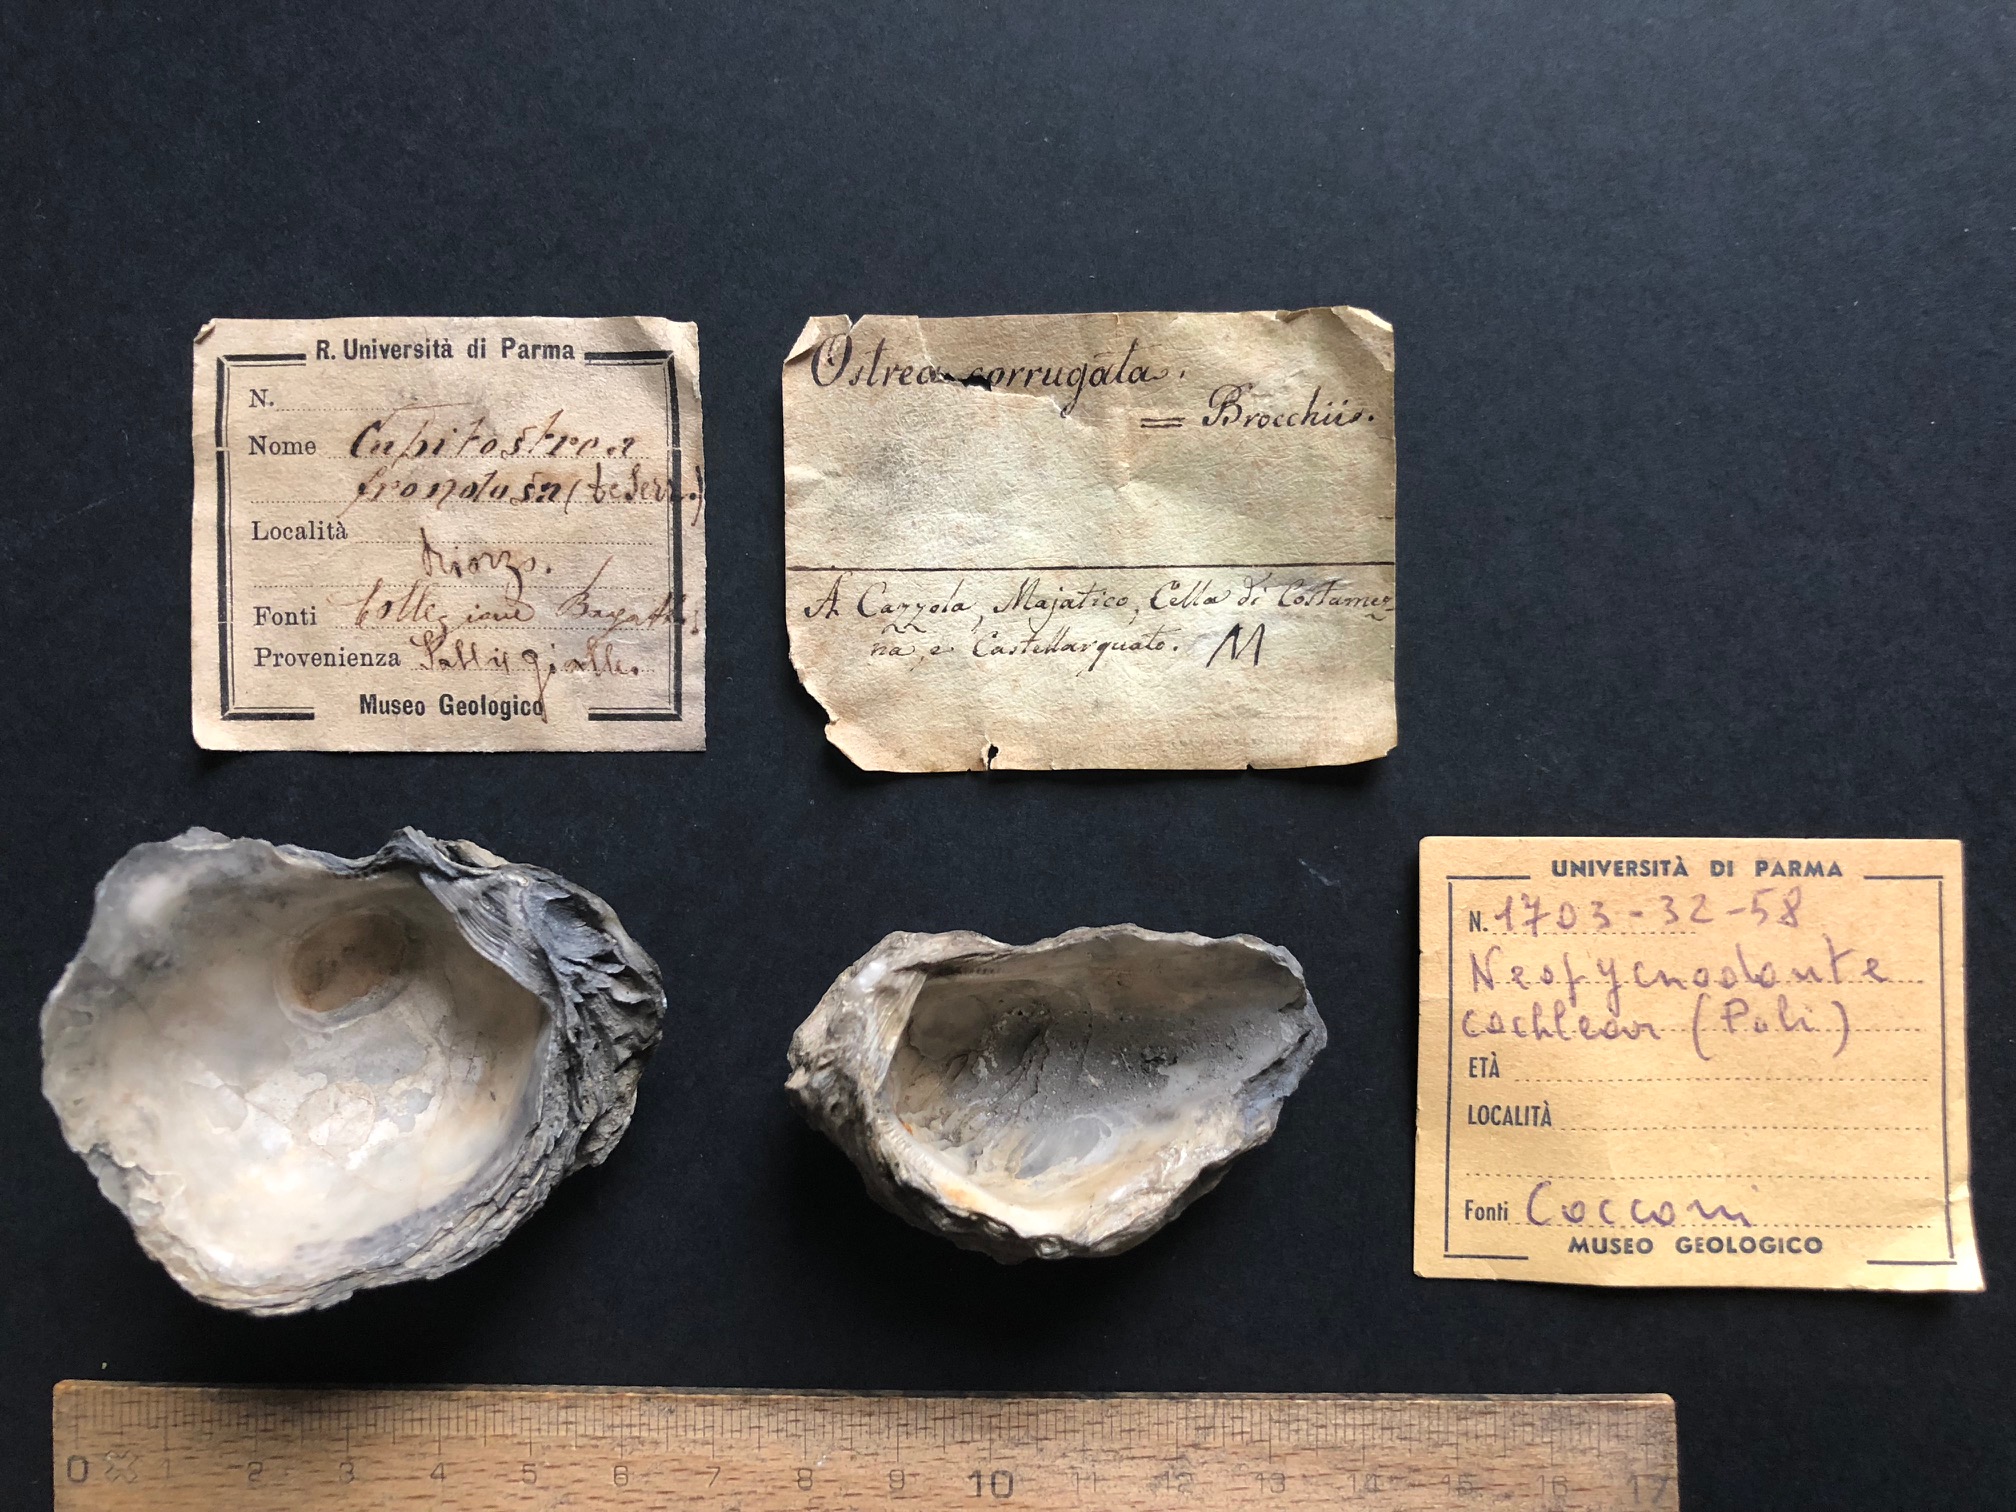 R. Università di Parma
N.
Nome Cubitostrea
frondosa (De Serr.)
Località
Riorzo.
Fonti Collezione
Provenienza Sabbie gialle.
Museo Geologico
Ostrea corrugata.
= Brocchii.
A Cazzola, Majatico, Cella di Costamez=
na, e Castellarquato. M
UNIVERSITÀ DI PARMA
N. 1703-32-58
Neopycnodonte
cochlear (Poli)
ETÀ
LOCALITÀ
Fonti Cocconi
MUSEO GEOLOGICO
0 1 2 3 4 5 6 7 8 9 10 11 12 13 14 15 16 17